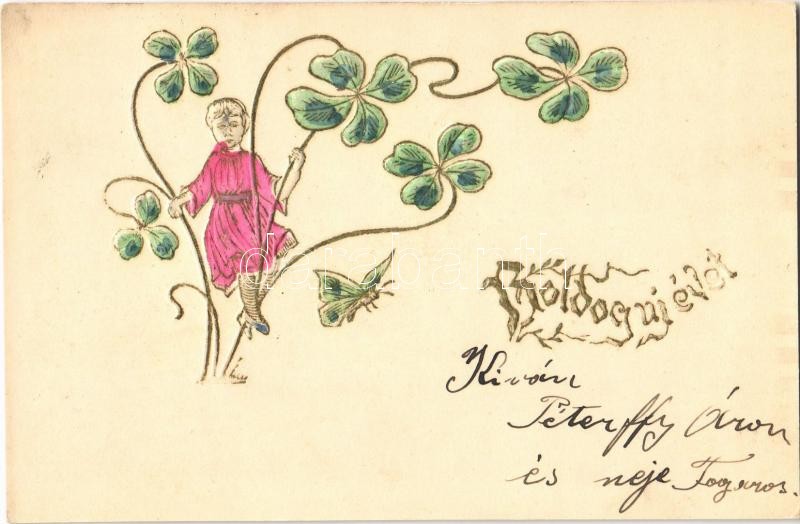 Boldog uj évet
Kiván
Péterffy Áron
és neje Fogaros.
darabanth